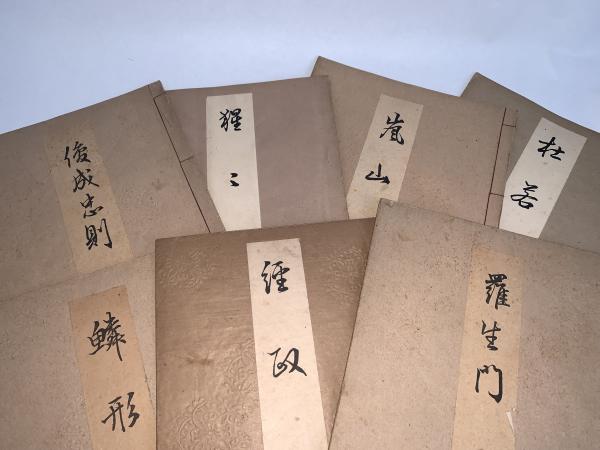 俊成忠則
猩〻
嵐山
杜若
鱗形
經政
羅生門